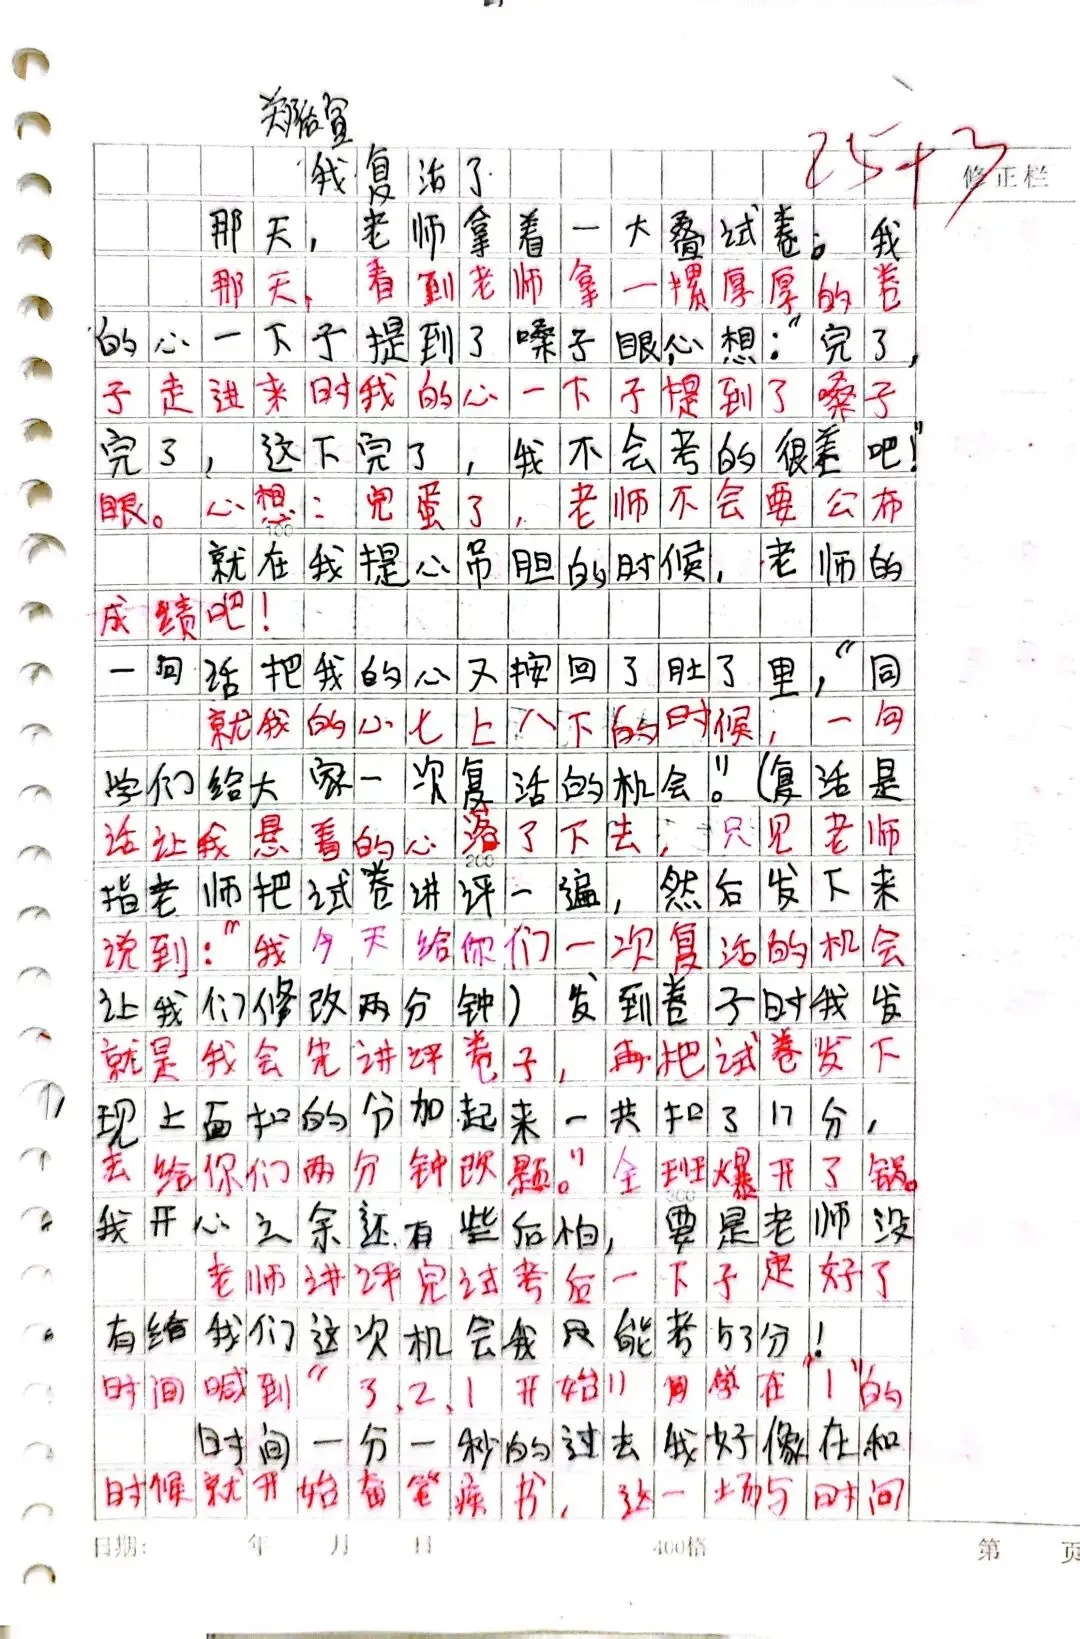 郑佑宣
我复活了
25+3
修正栏
那天，老师拿着一大叠试卷。我
那天，看到老师拿一摞厚厚的卷
的心一下子提到了嗓子眼心想：“完了，
子走进来时我的心一下子提到了嗓子
完了，这下完了，我不会考的很差吧！”
眼。心想：完蛋了，老师不会要公布
100
就在我提心吊胆的时候，老师的
成绩吧！
一句话把我的心又按回了肚了里，“同
就我的心七上八下的时候，一句
学们给大家一次复活的机会”。（复活是
话让我悬着的心落了下去，只见老师
200
指老师把试卷讲评一遍，然后发下来
说到：“我今天给你们一次复活的机会
让我们修改两分钟）发到卷子时我发
就是我会先讲评卷子，再把试卷发下
现上面扣的分加起来一共扣了17分，
去给你们两分钟改题。”全班爆开了锅。
300
我开心之余还有些后怕，要是老师没
老师讲评完试考后一下子定好了
有给我们这次机会我只能考83分！
时间喊到“3，2，1开始”同学在“1”的
时间一分一秒的过去我好像在和
时候就开始奋笔疾书，这一场与时间
日期： 年 月 日 400格 第 页